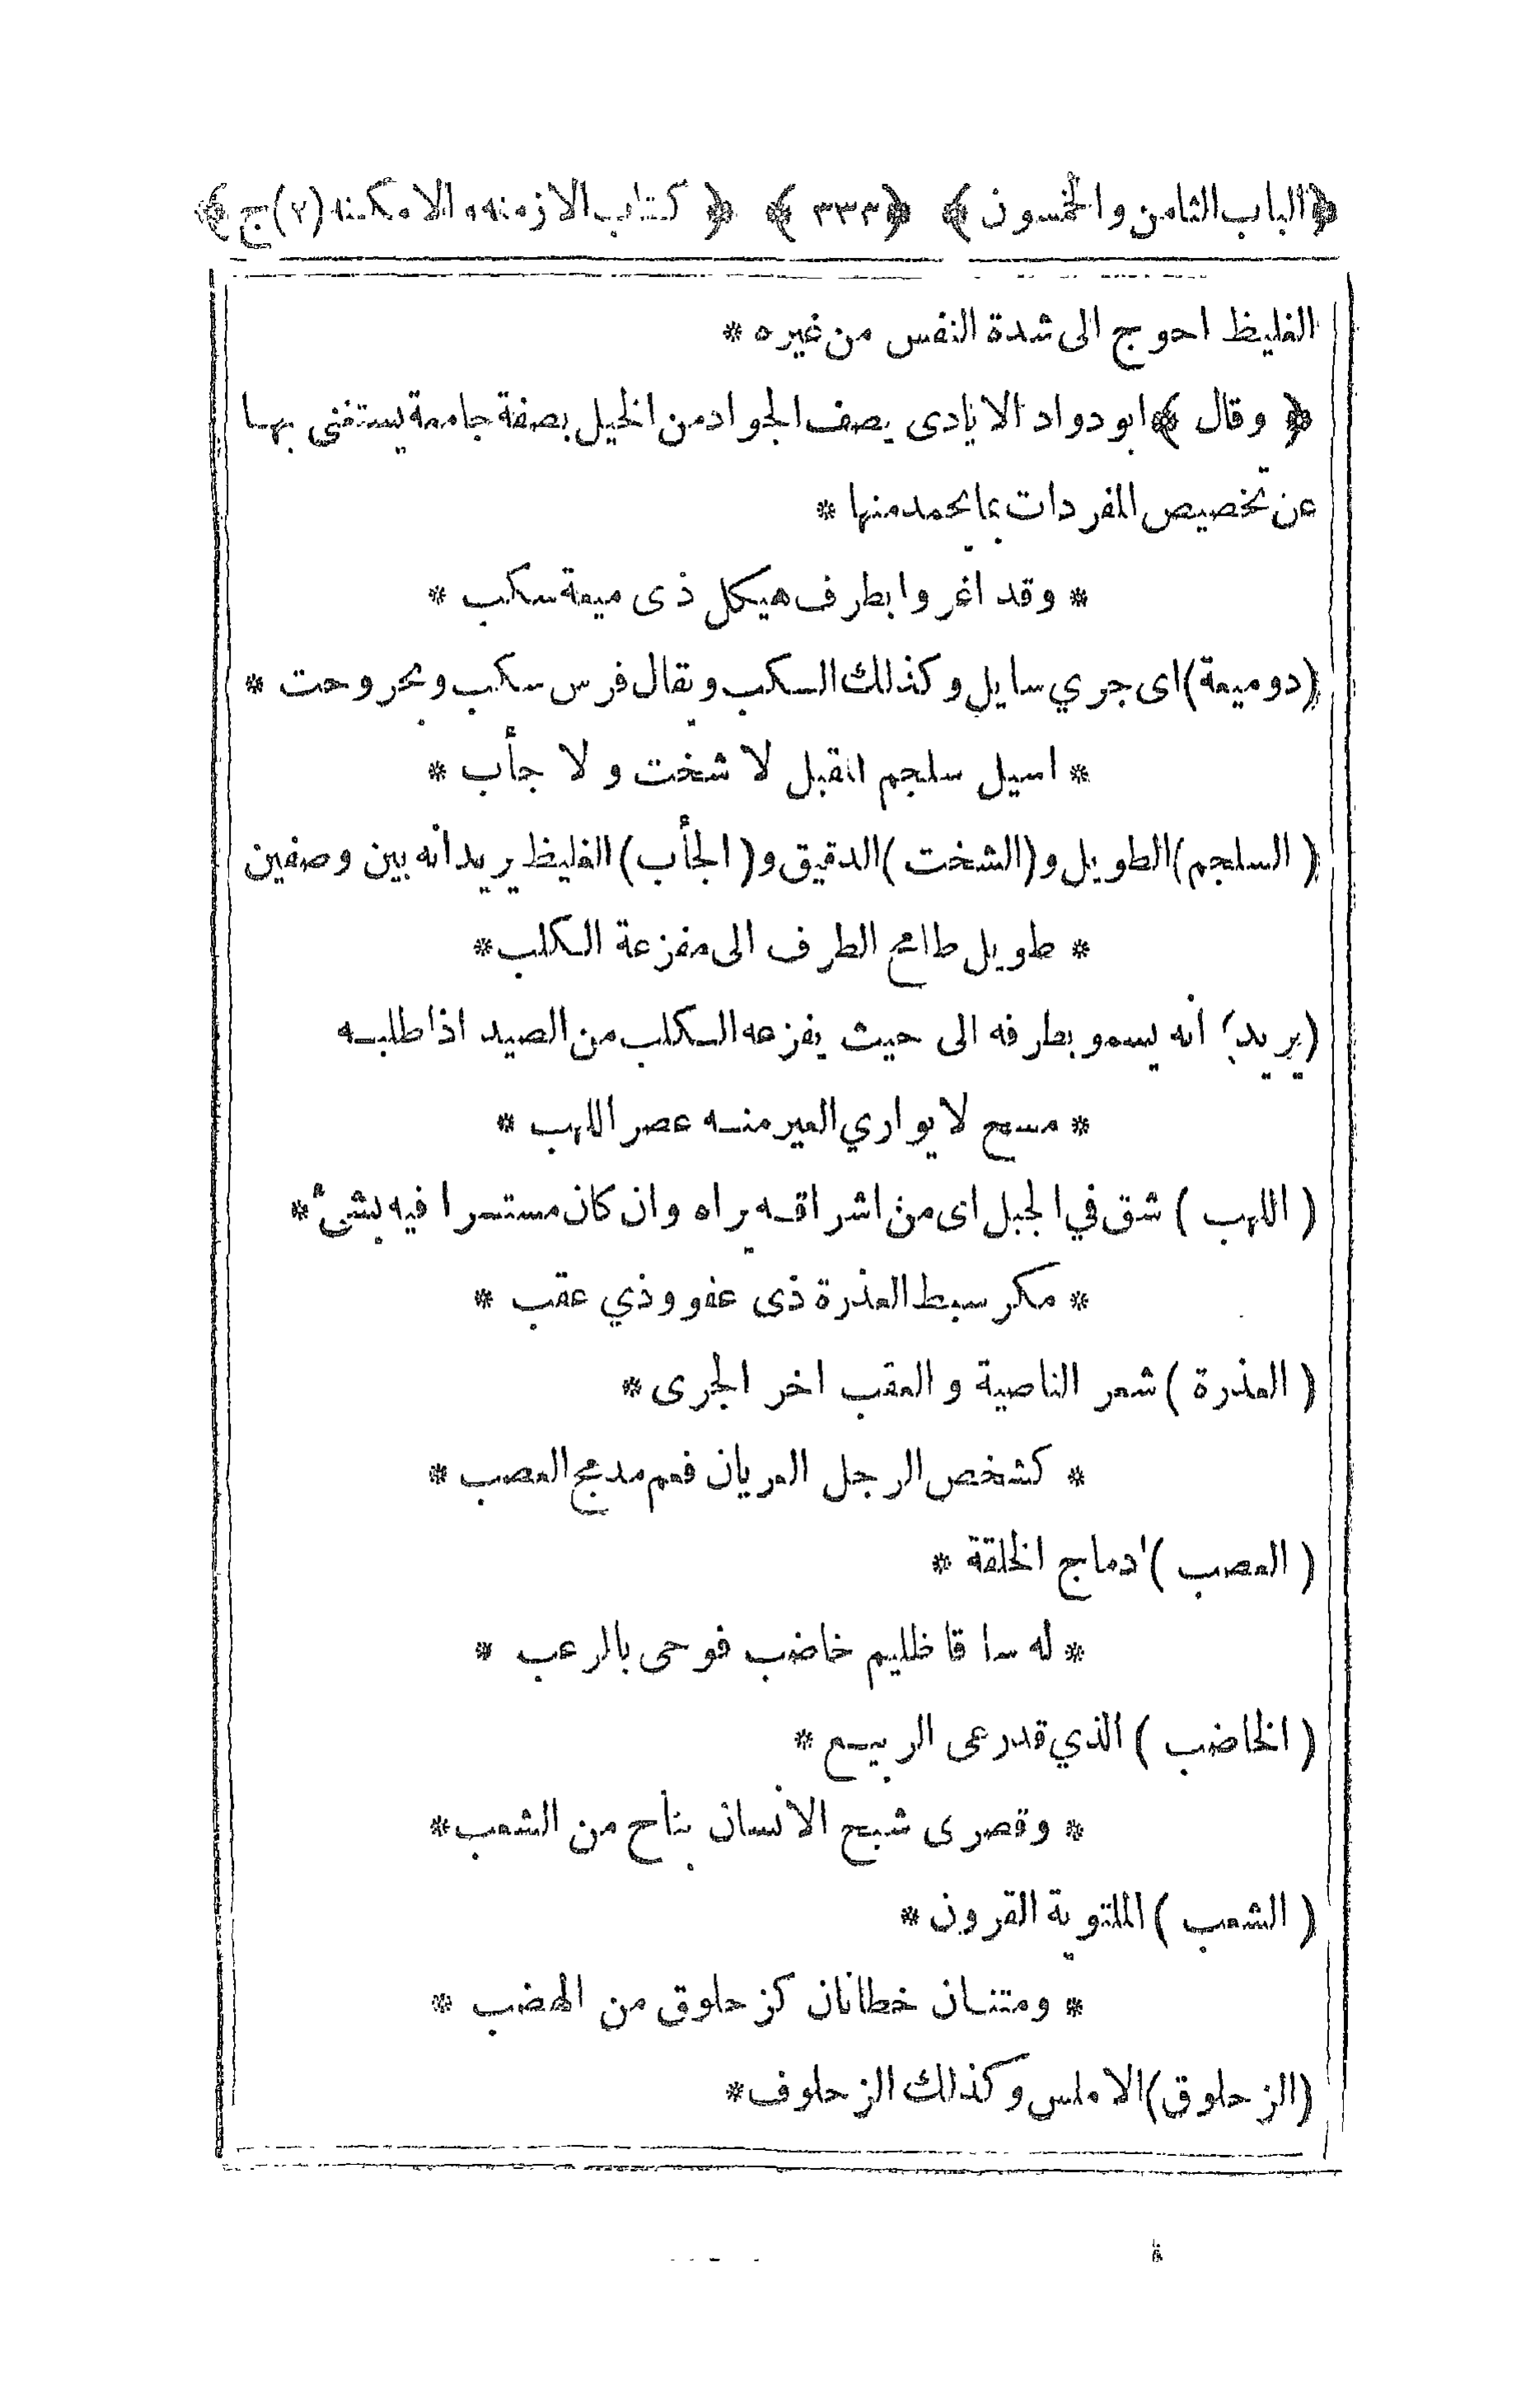 ﴿ الباب الثامن والخمسون ﴾ ﴿ ٣٣٣ ﴾ ﴿ كتاب الازمنه والامكنه (٢) ج ﴾
الغليظ احوج الى شدة النفس من غيره *
﴿ وقال ﴾ ابو دواد الايادى يصف الجواد من الخيل بصفة جامعة يستغنى بها
عن تخصيص المفردات بما يحمد منها *
* وقد اغروا بطرف هيكل ذى ميعة سكب *
(دو ميعة) اى جري سايل وكذلك السكب ويقال فرس سكب وبحر وحت *
* اسيل سلجم المقبل لا شخت ولا جأب *
( السلجم ) الطويل و ( الشخت ) الدقيق و ( الجأب ) الغليظ يريد انه بين وصفين
* طويل طامح الطرف الى مفزعة الكلب *
(يريد) انه يسمو بطرفه الى حيث يفزعه الكلب من الصيد اذا طلبه
* مسح لا يواري العير منه عصر اللهب *
( اللهب ) شق في الجبل اى من اشراقه يراه وان كان مستمرا فيه بشئ *
* مكر سبط العذرة ذى عفو وذي عقب *
( العذرة ) شعر الناصية والعقب اخر الجرى *
* كشخص الرجل العريان فعم مدمج العصب *
( العصب ) ادماج الخلقة *
* له ساقا ظليم خاضب فوحى بالرعب *
( الخاضب ) الذي قد رعى الربيع *
* وقصرى شبح الانسان بناح من الشعب *
( الشعب ) الملتوية القرون *
* ومتنان خطاتان كزحلوق من الهضب *
(الزحلوق) الاملس وكذلك الزحلوف *